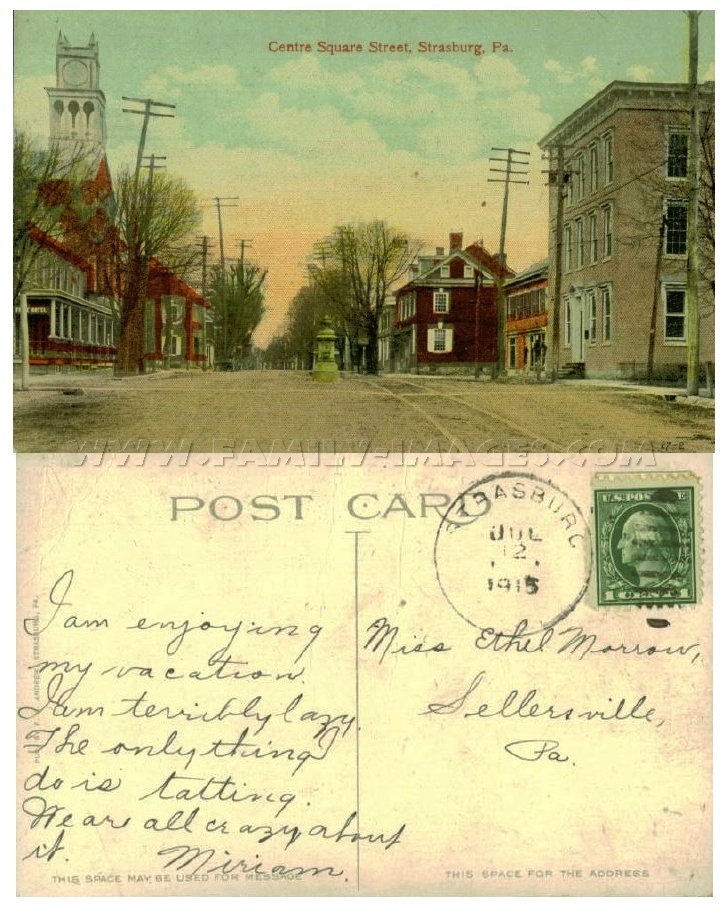 Centre Square Street, Strasburg, Pa.
HOTEL
17-2
WWW.FAMILY-IMAGES.COM
POST CARD
STRASBURG
JUL
12
1915
U.S. POSTAGE
1 CENT 1
I am enjoying
my vacation.
I am terribly lazy.
The only thing I
do is tatting.
We are all crazy about
it. Miriam.
Miss Ethel Morrow,
Sellersville,
Pa.
STRASBURG, PA.
THIS SPACE MAY BE USED FOR MESSAGE
THIS SPACE FOR THE ADDRESS